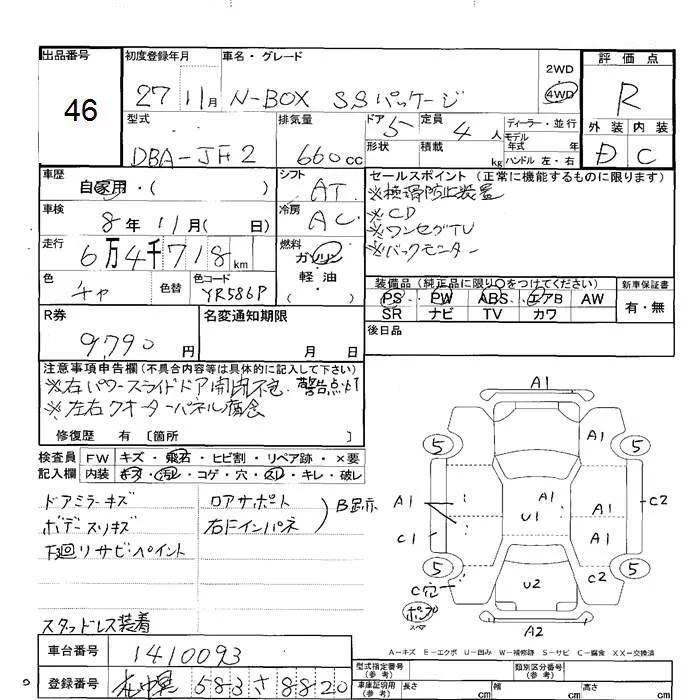 出品番号 初度登録年月 車名・グレード 評価点
46 27 11月 N-BOX SSパッケージ 2WD 4WD R
型式 排気量 ドア 5 定員 4人 ディーラー・並行 外装 内装
DBA-JF2 660cc 形状 積載 kg モデル年式 年式 ハンドル 左・右 D C
車歴 シフト セールスポイント (正常に機能するものに限ります)
自家用・( ) AT ※横滑防止装置
車検 8年 11月( 日) 冷房 AC ※CD
走行 6万4千718km 燃料 ※ワンセグTV
ガソリン 軽油 ※バックモニター
色 色替 色コード 装備品(純正品に限り○をつけてください) 新車保証書
チャ YR586P PS PW ABS エアB AW 有・無
R券 名変通知期限 SR ナビ TV カワ
9,790円 月 日 後日品
注意事項申告欄(不具合内容等は具体的に記入して下さい)
※右パワースライドドア開閉不 警告点灯
※左右クオーターパネル腐食
修復歴 有〔箇所 〕
検査員 FW キズ・飛石・ヒビ割・リペア跡・×要
記入欄 内装 キズ・汚れ・コゲ・穴・スレ・キレ・破レ
ドアミラーキズ ロアサポート B跡
ボデースリキズ 右Fインパネ
下廻りサビペイント
スタッドレス装着
車台番号 1410093
登録番号 583 さ 8820
A1
5 A1 5
A1 A1 A1 C2
U1
C1 A1
5 C穴 U2 C2 5
スペア
A2
A-キズ E-エクボ U-凹み W-補修跡 S-サビ C-腐食 XX-交換済
型式指定番号(参考) 類別区分番号(参考)
車庫証明用(参考) 長さ cm 幅 cm 高さ cm